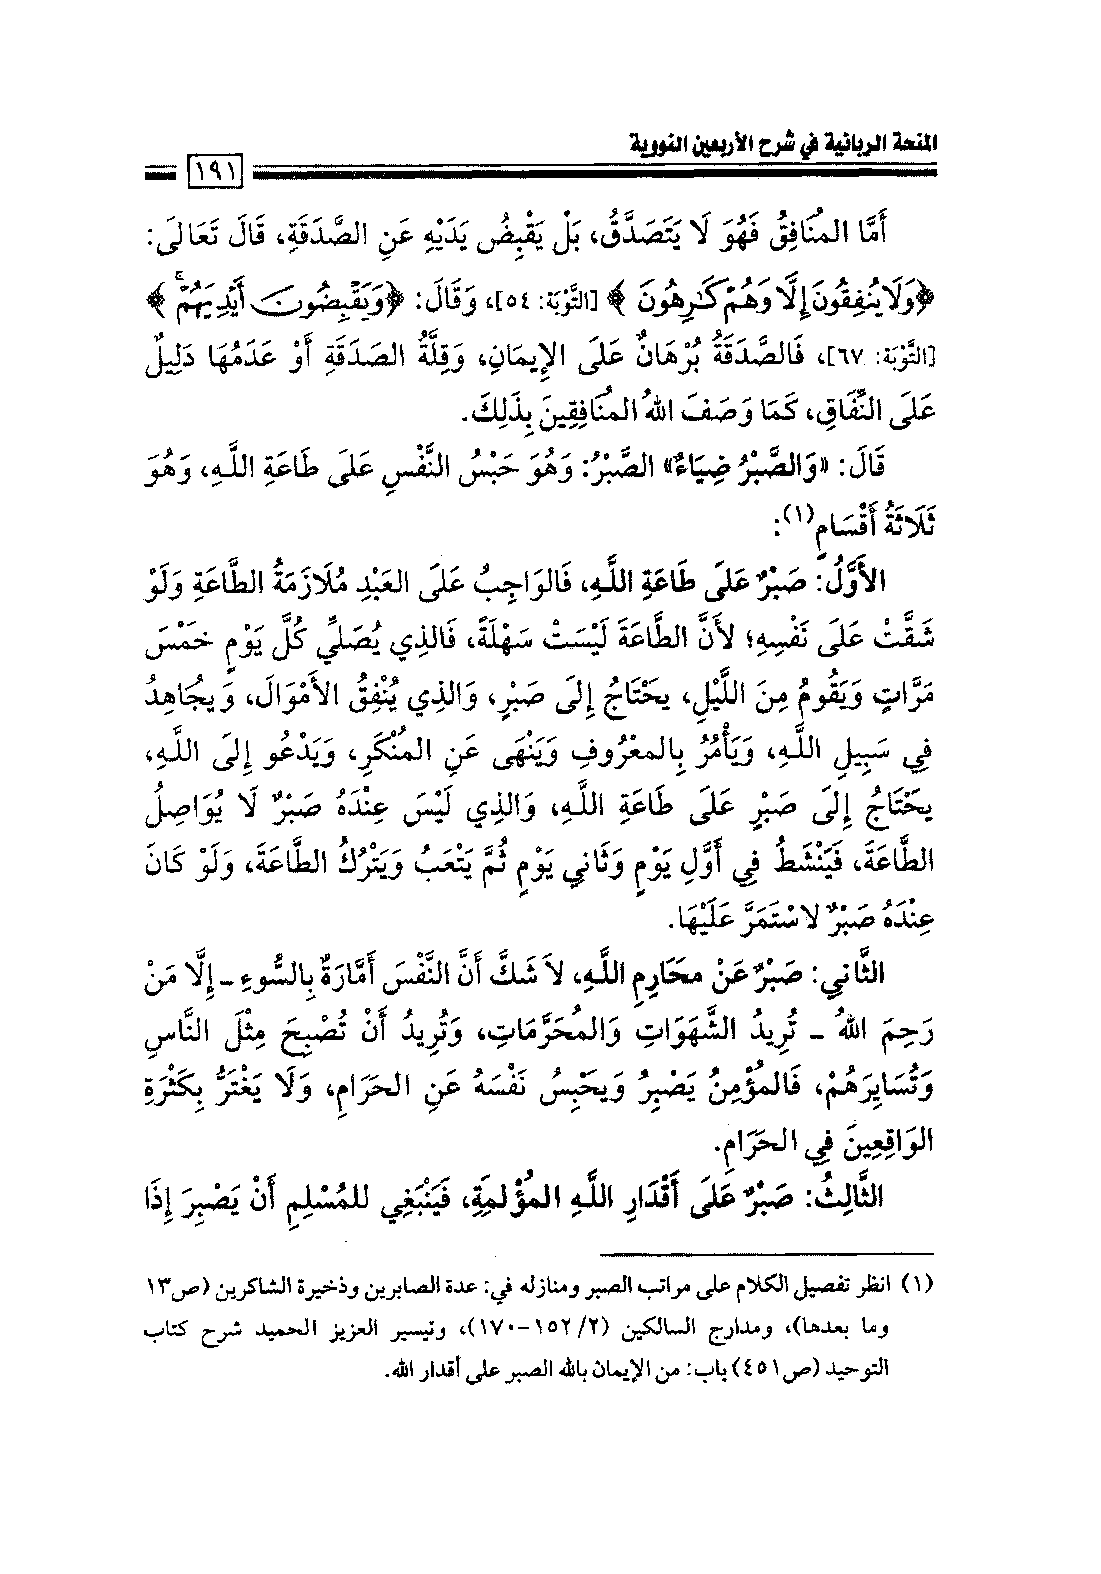 المنحة الربانية في شرح الأربعين النووية
١٩١
أَمَّا المُنَافِقُ فَهُوَ لَا يَتَصَدَّقُ، بَلْ يَقْبِضُ يَدَيْهِ عَنِ الصَّدَقَةِ، قَالَ تَعَالَى:
﴿وَلَا يُنفِقُونَ إِلَّا وَهُمْ كَٰرِهُونَ﴾ [التَّوْبَة: ٥٤]، وَقَالَ: ﴿وَيَقْبِضُونَ أَيْدِيَهُمْۚ﴾
[التَّوْبَة: ٦٧]، فَالصَّدَقَةُ بُرْهَانٌ عَلَى الإِيمَانِ، وَقِلَّةُ الصَّدَقَةِ أَوْ عَدَمُهَا دَلِيلٌ
عَلَى النِّفَاقِ، كَمَا وَصَفَ اللهُ المُنَافِقِينَ بِذَلِكَ.
قَالَ: «وَالصَّبْرُ ضِيَاءٌ» الصَّبْرُ: وَهُوَ حَبْسُ النَّفْسِ عَلَى طَاعَةِ اللَّهِ، وَهُوَ
ثَلَاثَةُ أَقْسَامٍ(١):
الأَوَّلُ: صَبْرٌ عَلَى طَاعَةِ اللَّهِ، فَالوَاجِبُ عَلَى العَبْدِ مُلَازَمَةُ الطَّاعَةِ وَلَوْ
شَقَّتْ عَلَى نَفْسِهِ؛ لأَنَّ الطَّاعَةَ لَيْسَتْ سَهْلَةً، فَالذِي يُصَلِّي كُلَّ يَوْمٍ خَمْسَ
مَرَّاتٍ وَيَقُومُ مِنَ اللَّيْلِ، يَحْتَاجُ إِلَى صَبْرٍ، وَالذِي يُنْفِقُ الأَمْوَالَ، وَيجَاهِدُ
فِي سَبِيلِ اللَّهِ، وَيَأْمُرُ بِالمَعْرُوفِ وَيَنْهَى عَنِ المُنْكَرِ، وَيَدْعُو إِلَى اللَّهِ،
يحْتَاجُ إِلَى صَبْرٍ عَلَى طَاعَةِ اللَّهِ، وَالذِي لَيْسَ عِنْدَهُ صَبْرٌ لَا يُوَاصِلُ
الطَّاعَةَ، فَيَنْشَطُ فِي أَوَّلِ يَوْمٍ وَثَانِي يَوْمٍ ثُمَّ يَتْعَبُ وَيَتْرُكُ الطَّاعَةَ، وَلَوْ كَانَ
عِنْدَهُ صَبْرٌ لاسْتَمَرَّ عَلَيْهَا.
الثَّانِي: صَبْرٌ عَنْ مَحَارِمِ اللَّهِ، لاَ شَكَّ أَنَّ النَّفْسَ أَمَّارَةٌ بِالسُّوءِ ـ إِلَّا مَنْ
رَحِمَ اللهُ ـ تُرِيدُ الشَّهَوَاتِ وَالمُحَرَّمَاتِ، وَتُرِيدُ أَنْ تُصْبِحَ مِثْلَ النَّاسِ
وَتُسَايِرَهُمْ، فَالمُؤْمِنُ يَصْبِرُ وَيحْبِسُ نَفْسَهُ عَنِ الحَرَامِ، وَلَا يَغْتَرُّ بِكَثْرَةِ
الوَاقِعِينَ فِي الحَرَامِ.
الثَّالِثُ: صَبْرٌ عَلَى أَقْدَارِ اللَّهِ المُؤْلمَةِ، فَيَنْبَغِي للمُسْلِمِ أَنْ يَصْبِرَ إِذَا
(١) انظر تفصيل الكلام على مراتب الصبر ومنازله في: عدة الصابرين وذخيرة الشاكرين (ص١٣
وما بعدها)، ومدارج السالكين (١٥٢/٢-١٧٠)، وتيسير العزيز الحميد شرح كتاب
التوحيد (ص٤٥١) باب: من الإيمان بالله الصبر على أقدار الله.